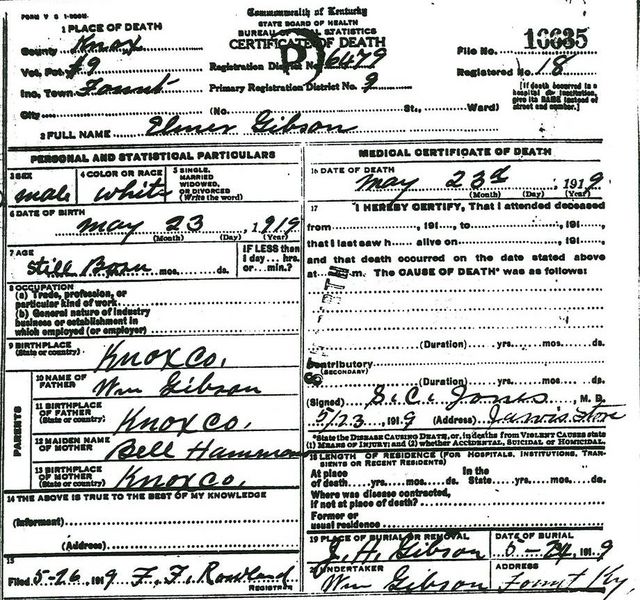 FORM V S 1-300M.
Commonwealth of Kentucky
STATE BOARD OF HEALTH
BUREAU OF VITAL STATISTICS
CERTIFICATE OF DEATH
1 PLACE OF DEATH
County Knox
Vot. Pct. #9
Inc. Town Fount
City (No. St., Ward)
Registration District No. 6479
Primary Registration District No. 9
File No. 16635
Registered No. 18
[If death occurred in a
hospital or institution,
give its NAME instead of
street and number.]
2 FULL NAME Elmer Gibson
PERSONAL AND STATISTICAL PARTICULARS
3 SEX
male
4 COLOR OR RACE
white
5 SINGLE,
MARRIED
WIDOWED,
OR DIVORCED
(Write the word)
6 DATE OF BIRTH
May 23, 1919
(Month) (Day) (Year)
7 AGE
Still Born mos. ds.
IF LESS than
1 day... hrs.
or... min.?
8 OCCUPATION
(a) Trade, profession, or
particular kind of work
(b) General nature of industry
business or establishment in
which employed (or employer)
9 BIRTHPLACE
(State or country)
Knox Co,
PARENTS
10 NAME OF
FATHER
Wm Gibson
11 BIRTHPLACE
OF FATHER
(State or country)
Knox Co,
12 MAIDEN NAME
OF MOTHER
Bell Hammons
13 BIRTHPLACE
OF MOTHER
(State or country)
Knox Co,
14 THE ABOVE IS TRUE TO THE BEST OF MY KNOWLEDGE
(Informant)
(Address)
15
Filed 5-26, 1919 F. F. Rowland
REGISTRAR
MEDICAL CERTIFICATE OF DEATH
16 DATE OF DEATH
May 23d, 1919
(Month) (Day) (Year)
17 I HEREBY CERTIFY, That I attended deceased
from , 191 , to , 191 ,
that I last saw h alive on , 191 ,
and that death occurred on the date stated above
at m. The CAUSE OF DEATH* was as follows:
(Duration) yrs. mos. ds.
Contributory
(SECONDARY)
(Duration) yrs. mos. ds.
(Signed) S. C. Jones, M. D.
5/23, 1919 (Address) Jarvis Store
*State the DISEASE CAUSING DEATH, or, in deaths from VIOLENT CAUSES state
(1) MEANS OF INJURY; and (2) whether ACCIDENTAL, SUICIDAL or HOMICIDAL.
18 LENGTH OF RESIDENCE (FOR HOSPITALS, INSTITUTIONS, TRANSIENTS OR RECENT RESIDENTS)
At place
of death yrs. mos. ds.
In the
State yrs. mos. ds.
Where was disease contracted,
if not at place of death?
Former or
usual residence
19 PLACE OF BURIAL OR REMOVAL
J. H. Gibson
DATE OF BURIAL
5-24, 1919
20 UNDERTAKER
Wm Gibson
ADDRESS
Fount Ky,